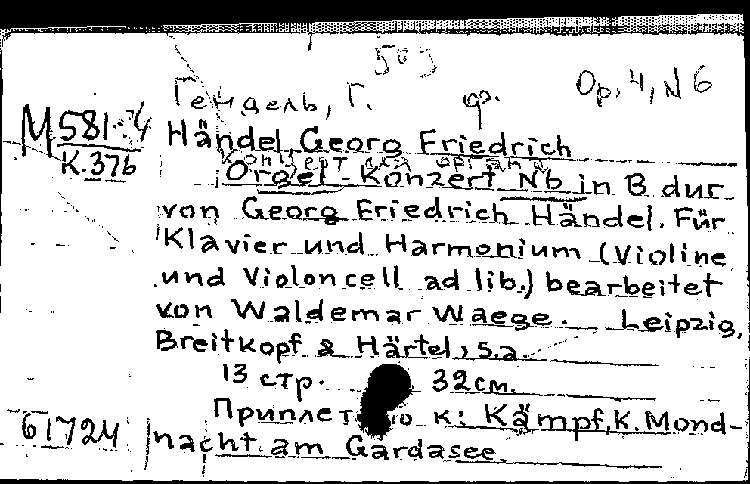 503
Op. 4, N 6
Гендель, Г. Ф.
М581-4
К.376
Händel, Georg Friedrich
Концерт для органа
Orgel-Konzert N6 in B dur
von Georg Friedrich Händel. Für
Klavier und Harmonium (Violine
und Violoncell ad lib.) bearbeitet
von Waldemar Waege. Leipzig,
Breitkopf & Härtel, s.a.
13 стр. 32см.
Приплетено к: Kämpf, K. Mond-
61724 nacht am Gardasee.